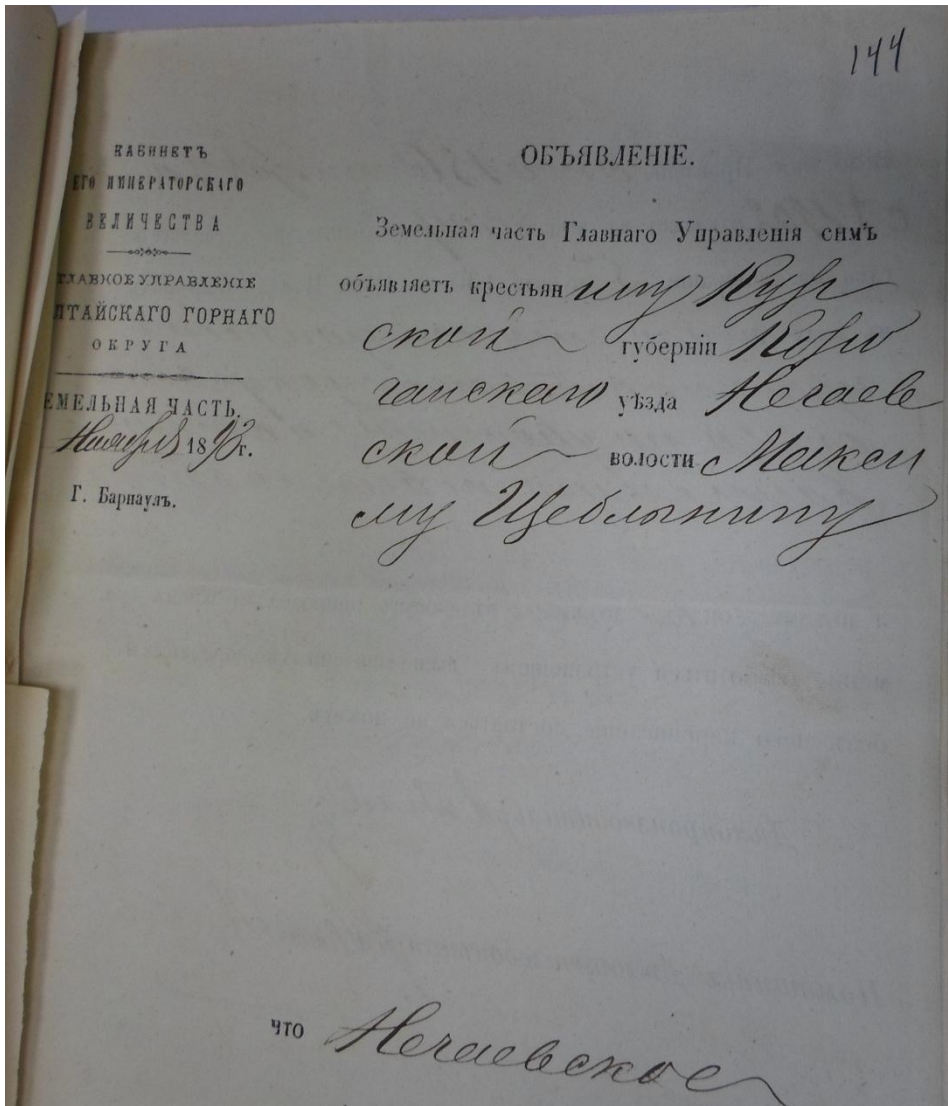 144
КАБИНЕТЪ
ЕГО ИМПЕРАТОРСКАГО
ВЕЛИЧЕСТВА
ГЛАВНОЕ УПРАВЛЕНІЕ
ЛТАЙСКАГО ГОРНАГО
ОКРУГА
ЕМЕЛЬНАЯ ЧАСТЬ.
Ноября 1893 г.
Г. Барнаулъ.
ОБЪЯВЛЕНІЕ.
Земельная часть Главнаго Управленія симъ
объявляетъ крестьянину Кур
ской губерніи Коро
чанскаго уѣзда Нечаев
ской волости Макси
му Щеблыкину
что Нечаевское